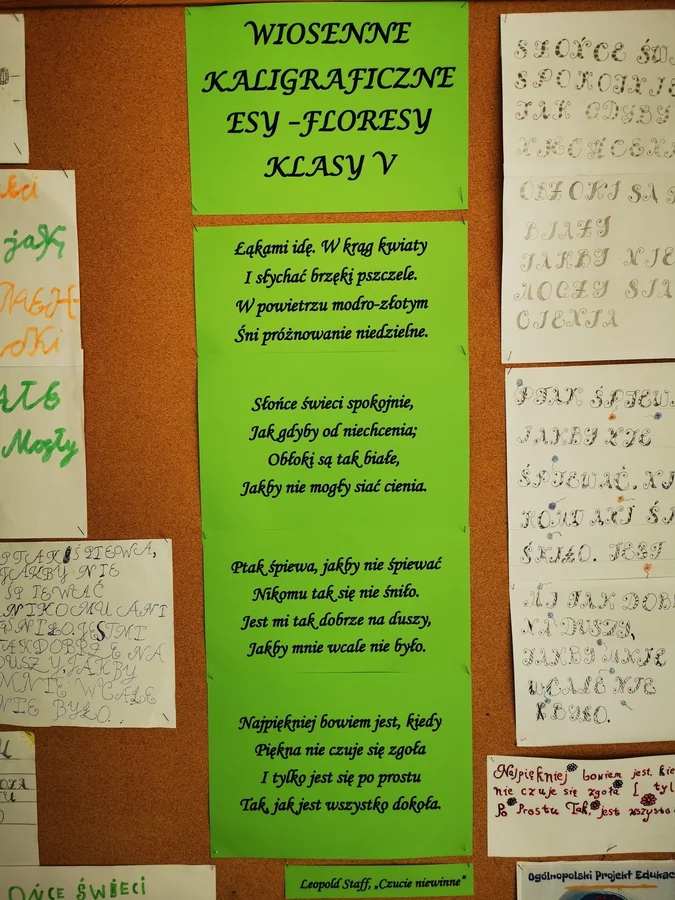 WIOSENNE
KALIGRAFICZNE
ESY –FLORESY
KLASY V
Łąkami idę. W krąg kwiaty
I słychać brzęki pszczele.
W powietrzu modro-złotym
Śni próżnowanie niedzielne.
Słońce świeci spokojnie,
Jak gdyby od niechcenia;
Obłoki są tak białe,
Jakby nie mogły siać cienia.
Ptak śpiewa, jakby nie śpiewać
Nikomu tak się nie śniło.
Jest mi tak dobrze na duszy,
Jakby mnie wcale nie było.
Najpiękniej bowiem jest, kiedy
Piękna nie czuje się zgoła
I tylko jest się po prostu
Tak, jak jest wszystko dokoła.
Leopold Staff, „Czucie niewinne”
jak
Mogły
PTAK ŚPIEWA,
JAKBY NIE
ŚPIEWAĆ
NIKOMU ANI
ŚNIŁO. JEST MI
TAK DOBRZE NA
DUSZY, JAKBY
MNIE WCALE
NIE BYŁO.
ŚWIECI
SŁOŃCE
SPOKOJNIE
JAK GDYBY
OBŁOKI SĄ
BIAŁY
JAKBY NIE
MOGŁY SIA
CIENIA
PTAK ŚPIEW
JAKBY NIE
ŚPIEWAĆ. NI
ŚNIŁO. JEST
MI TAK DOB
NA DUSZY,
JAKBY MNIE
WCALE NIE
BYŁO.
Najpiękniej bowiem jest, kie
nie czuje się zgoła I tyl
Po Prostu Tak, jest wszystko
Ogólnopolski Projekt Edukac